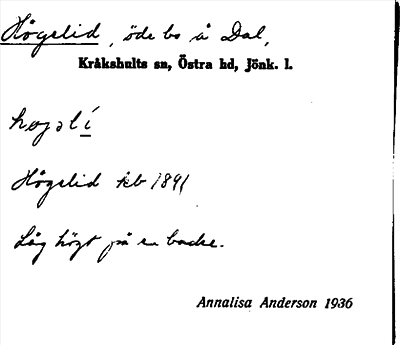 Högelid, öde bo å Dal,
Kråkshults sn, Östra hd, Jönk. l.
högelid kb 1891
Låg högt på en backe.
Annalisa Anderson 1936